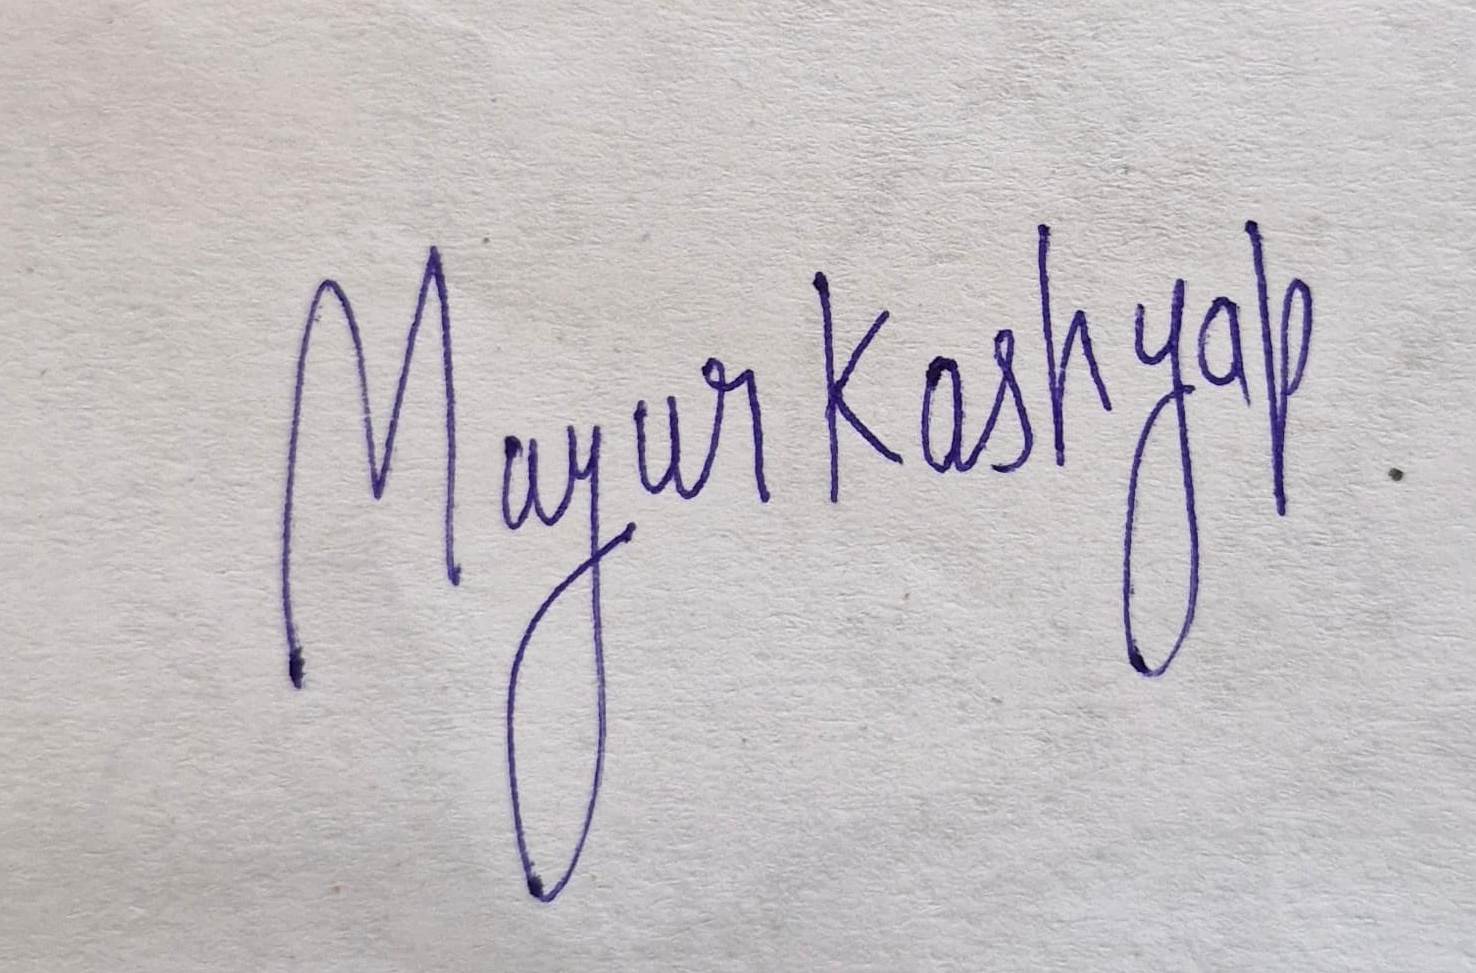 Mayur Kashyap